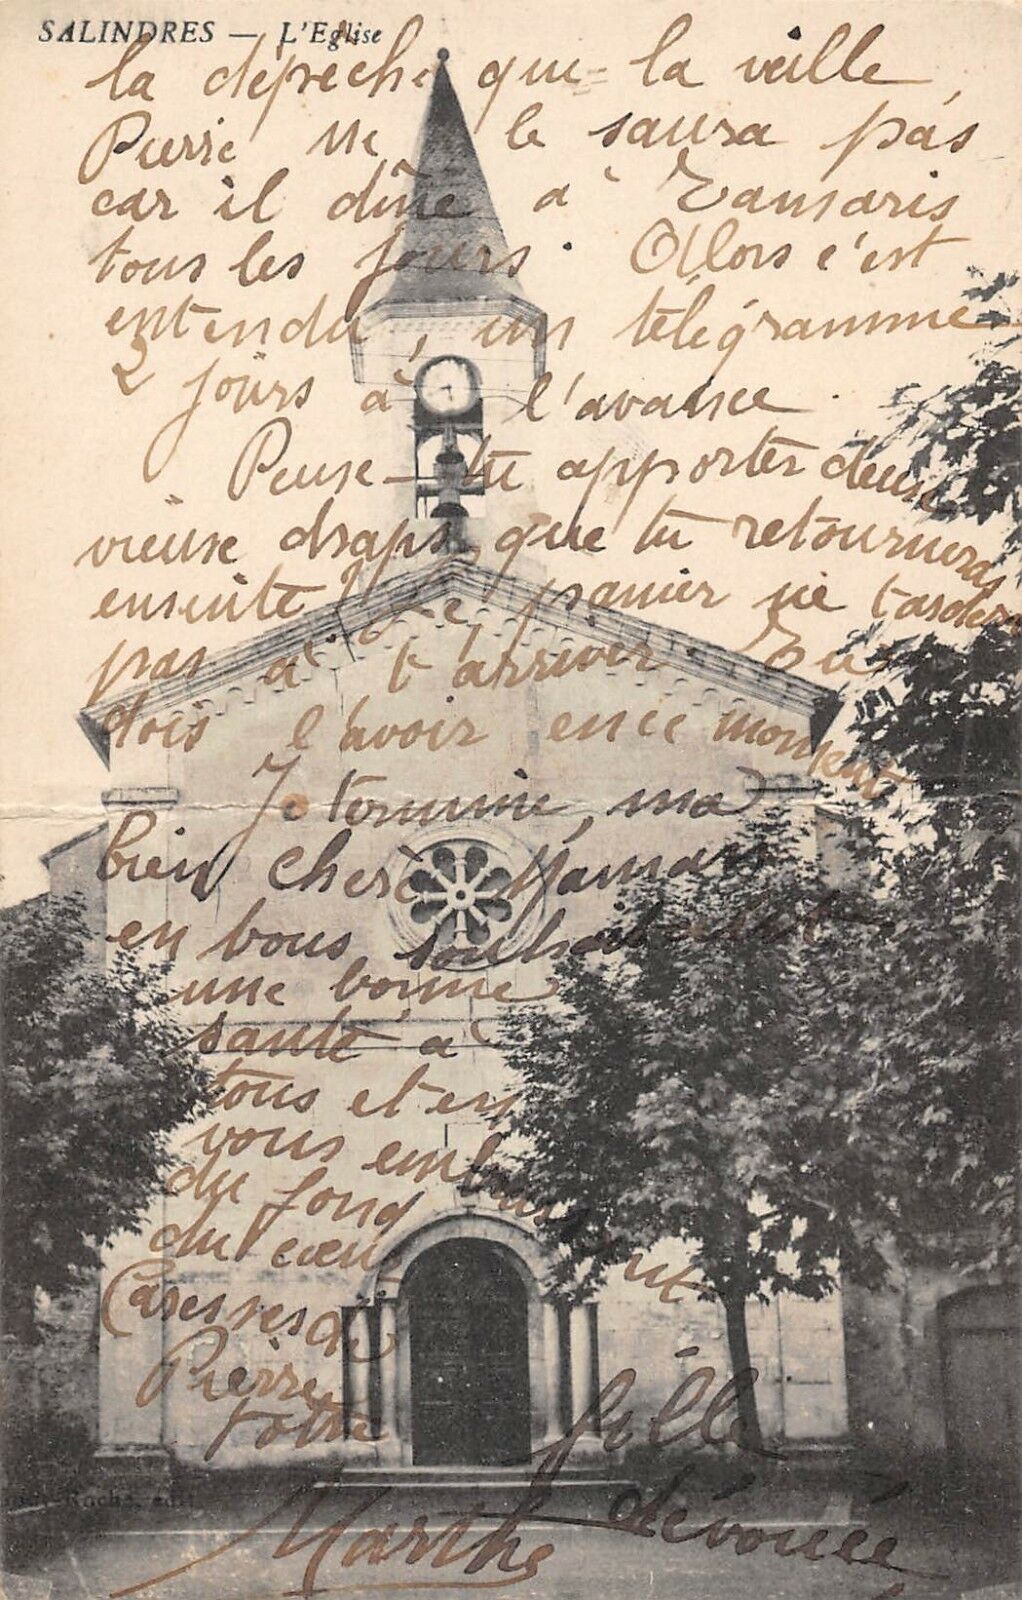 SALINDRES — L'Eglise
la dépêche que la veille,
Pierre ne le saura pas
car il dîne à Tamaris
tous les jours. Alors c'est
entendu, un télégramme
2 jours à l'avance.
Pense-tu apporter deux
vieuse draps que tu retourneras
ensuite? Le panier ne tardera
pas à t'arriver. Tu
dois l'avoir en ce moment
Je termine, ma
bien chère Maman
en vous souhaitant
une bonne
santé à
tous et en
vous embrassant
du fond
du cœur
Caresses de
Pierre
votre fille
dévouée
Marthe
Roche, édit